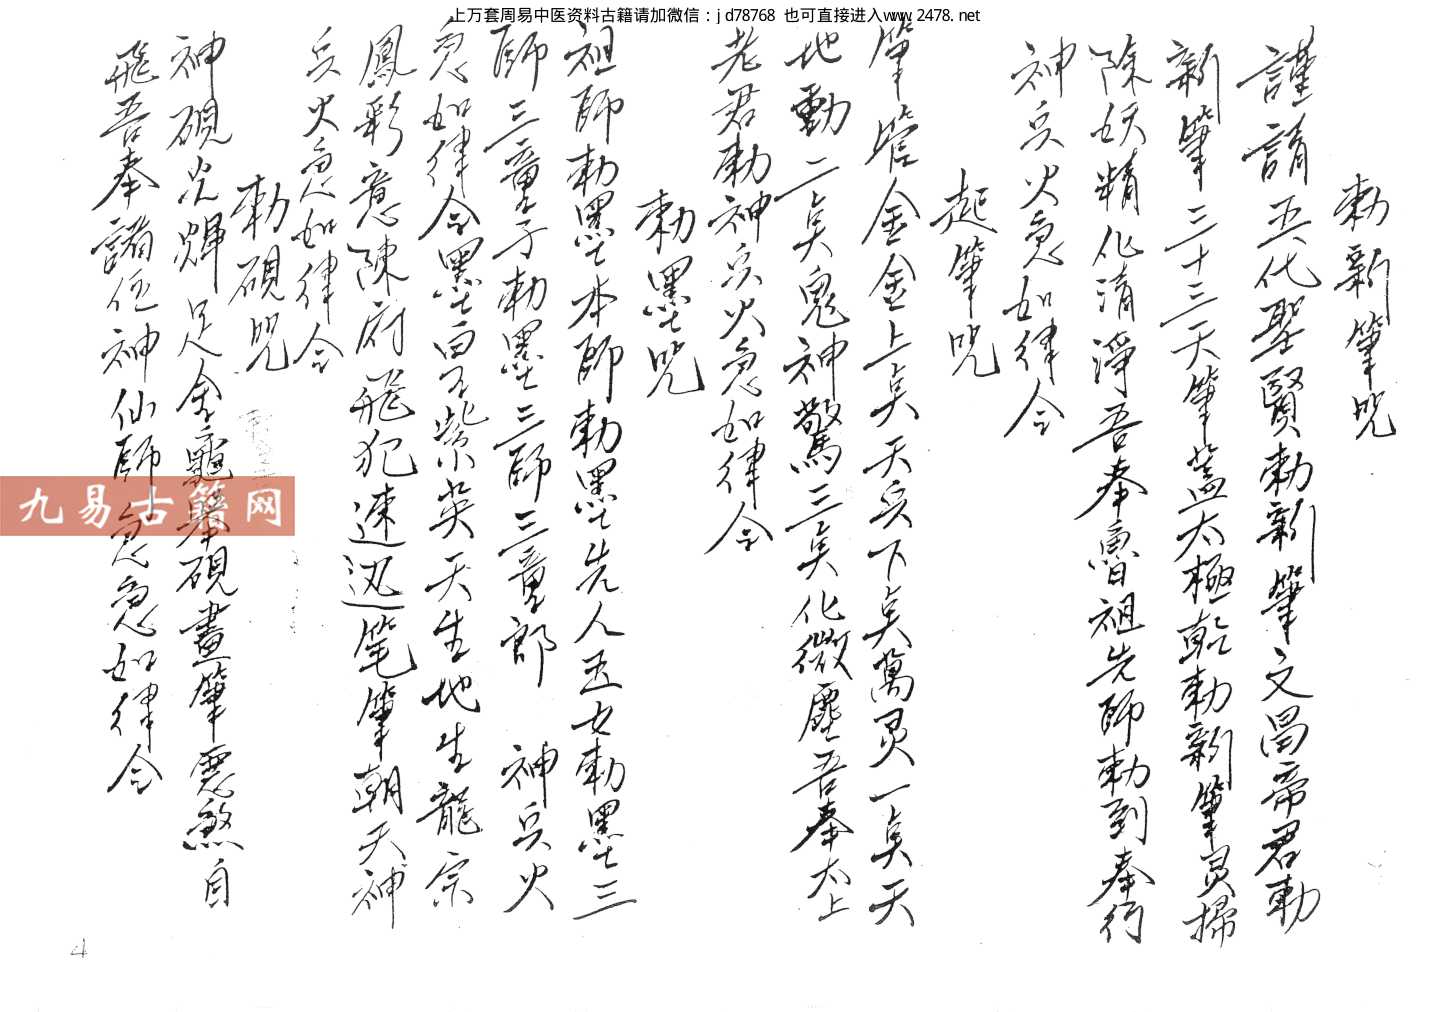 上万套周易中医资料古籍请加微信：jd78768 也可直接进入www.2478.net
勅新筆咒
謹請五代聖賢勅新筆文昌帝君勅
新筆三十三天筆蓋太極乾勅新筆灵掃
除妖精化清淨吾奉魯祖先師勅到奉行
神兵火急如律令
起筆咒
筆管金金上㚑天兵下㚑萬灵一㚑天
地動二㚑鬼神驚三㚑化微塵吾奉太上
老君勅神兵火急如律令
勅墨咒
祖師勅墨本師勅墨先人玉女勅墨三
師三童子勅墨三師三童郎 神兵火
急如律令墨白不紫英天生地生龍宗
鳳彩意陳府飛犯速迅笔筆朝天神
兵火急如律令
勅硯咒
神硯光輝足金龜擧硯畫筆惡煞自
飛吾奉諸位神仙師急急如律令
九易古籍网
4